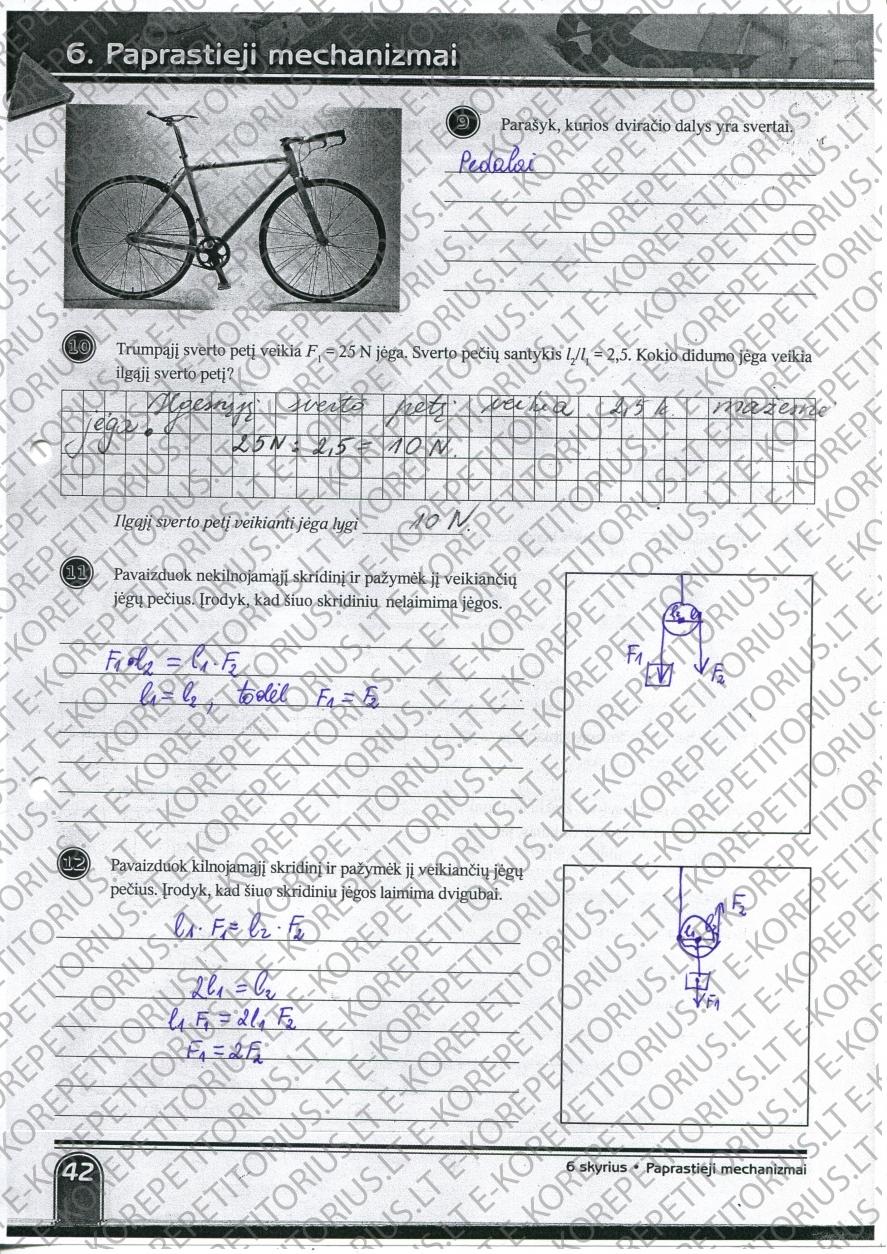 6. Paprastieji mechanizmai
9 Parašyk, kurios dviračio dalys yra svertai.
Pedalai
10 Trumpąjį sverto petį veikia F₁ = 25 N jėga. Sverto pečių santykis l₂/l₁ = 2,5. Kokio didumo jėga veikia
ilgąjį sverto petį?
Ilgesnįjį sverto petį veikia 2,5 k. mažesnė
jėga.
25N : 2,5 = 10 N.
Ilgąjį sverto petį veikianti jėga lygi 10 N.
11 Pavaizduok nekilnojamąjį skridinį ir pažymėk jį veikiančių
jėgų pečius. Įrodyk, kad šiuo skridiniu nelaimima jėgos.
F₁·l₂ = l₁·F₂
l₁ = l₂, todėl F₁ = F₂
F₁
F₂
12 Pavaizduok kilnojamąjį skridinį ir pažymėk jį veikiančių jėgų
pečius. Įrodyk, kad šiuo skridiniu jėgos laimima dvigubai.
l₁ · F₁ = l₂ · F₂
2l₁ = l₂
l₁ F₁ = 2l₁ F₂
F₁ = 2F₂
F₂
l₁
F₁
42
6 skyrius • Paprastieji mechanizmai
E-KOREPETITORIUS.LT